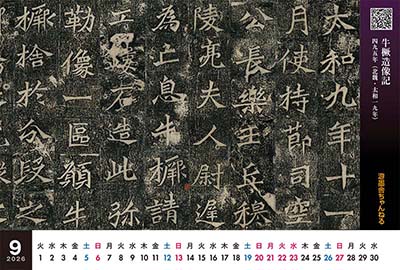 牛橛造像記
四九五年（北魏・太和一九年）
遊墨舎ちゃんねる
太和九年十一
月使持節司空
公長樂王丘穆
陵亮夫人尉遲
為亡息牛橛請
工鏤石造此彌
勒像一區願牛
橛捨於分段之
9
2026
火 水 木 金 土 日 月 火 水 木 金 土 日 月 火 水 木 金 土 日 月 火 水 木 金 土 日 月 火 水
1 2 3 4 5 6 7 8 9 10 11 12 13 14 15 16 17 18 19 20 21 22 23 24 25 26 27 28 29 30